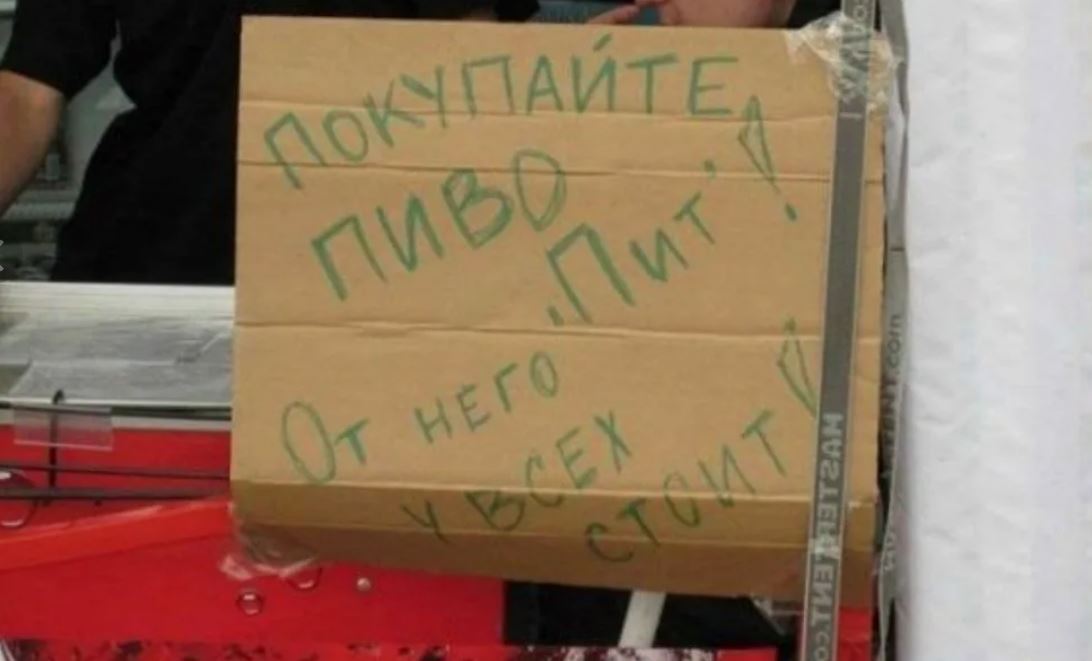 ПОКУПАЙТЕ
ПИВО
„Пит"!
От НЕГО
У ВСЕХ
СТОИТ!
MASTERTENT.CO